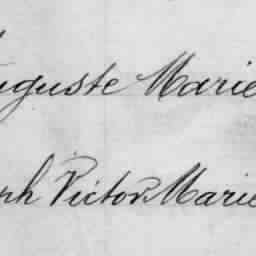 uguste Marie
ph Victor Marie